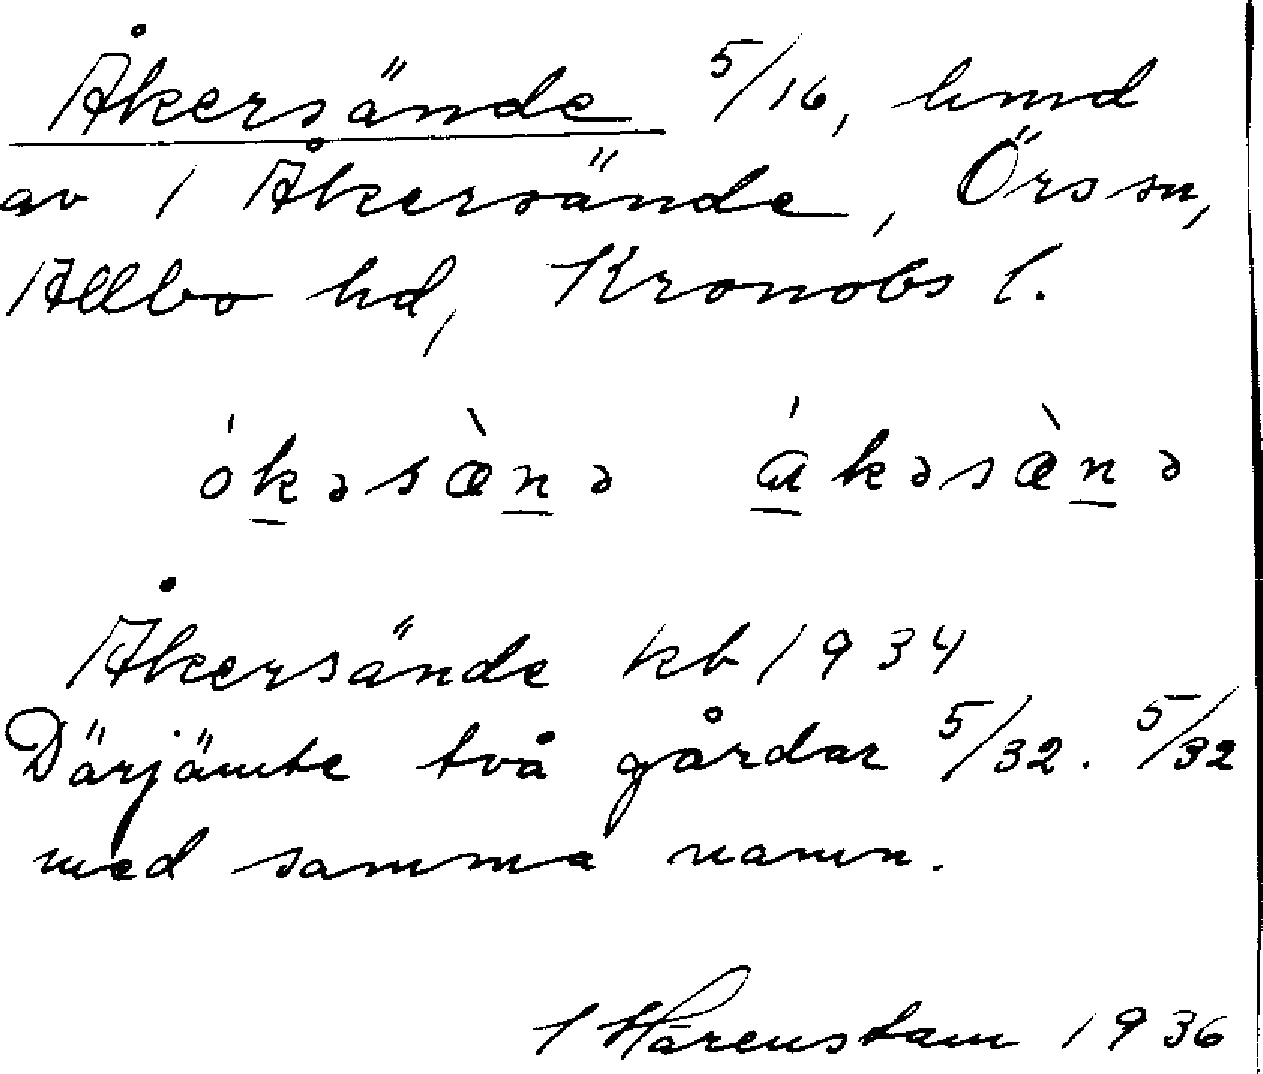 Åkersände 5/16, hmd
av 1 Åkersände, Örs sn,
Allbo hd, Kronobs l.
ókəsæ̀nə ákəsæ̀nə
Åkersände kb 1934
Därjämte två gårdar 5/32. 5/32
med samma namn.
Harenstam 1936